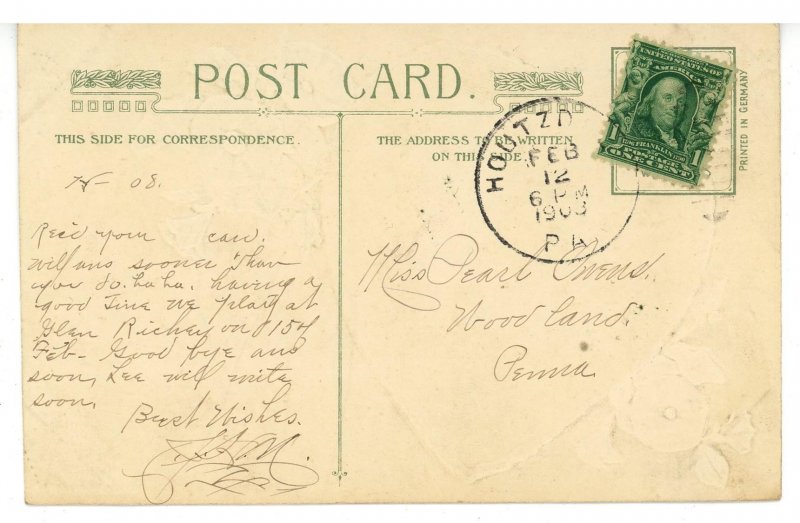 POST CARD.
THIS SIDE FOR CORRESPONDENCE.
THE ADDRESS TO BE WRITTEN
ON THIS SIDE.
PRINTED IN GERMANY
UNITED STATES OF
AMERICA
1 FRANKLIN 1
POSTAGE
ONE CENT
HOUTZD
FEB
12
6 PM
1908
PA
08.
Rec'd your card.
will ans sooner than
you do. ha ha. having a
good Time we play at
Glen Richey on 15 of
Feb- Good bye ans
soon, Lee will write
soon.
Best Wishes.
Miss Pearl Owens.
Woodland.
Penna.